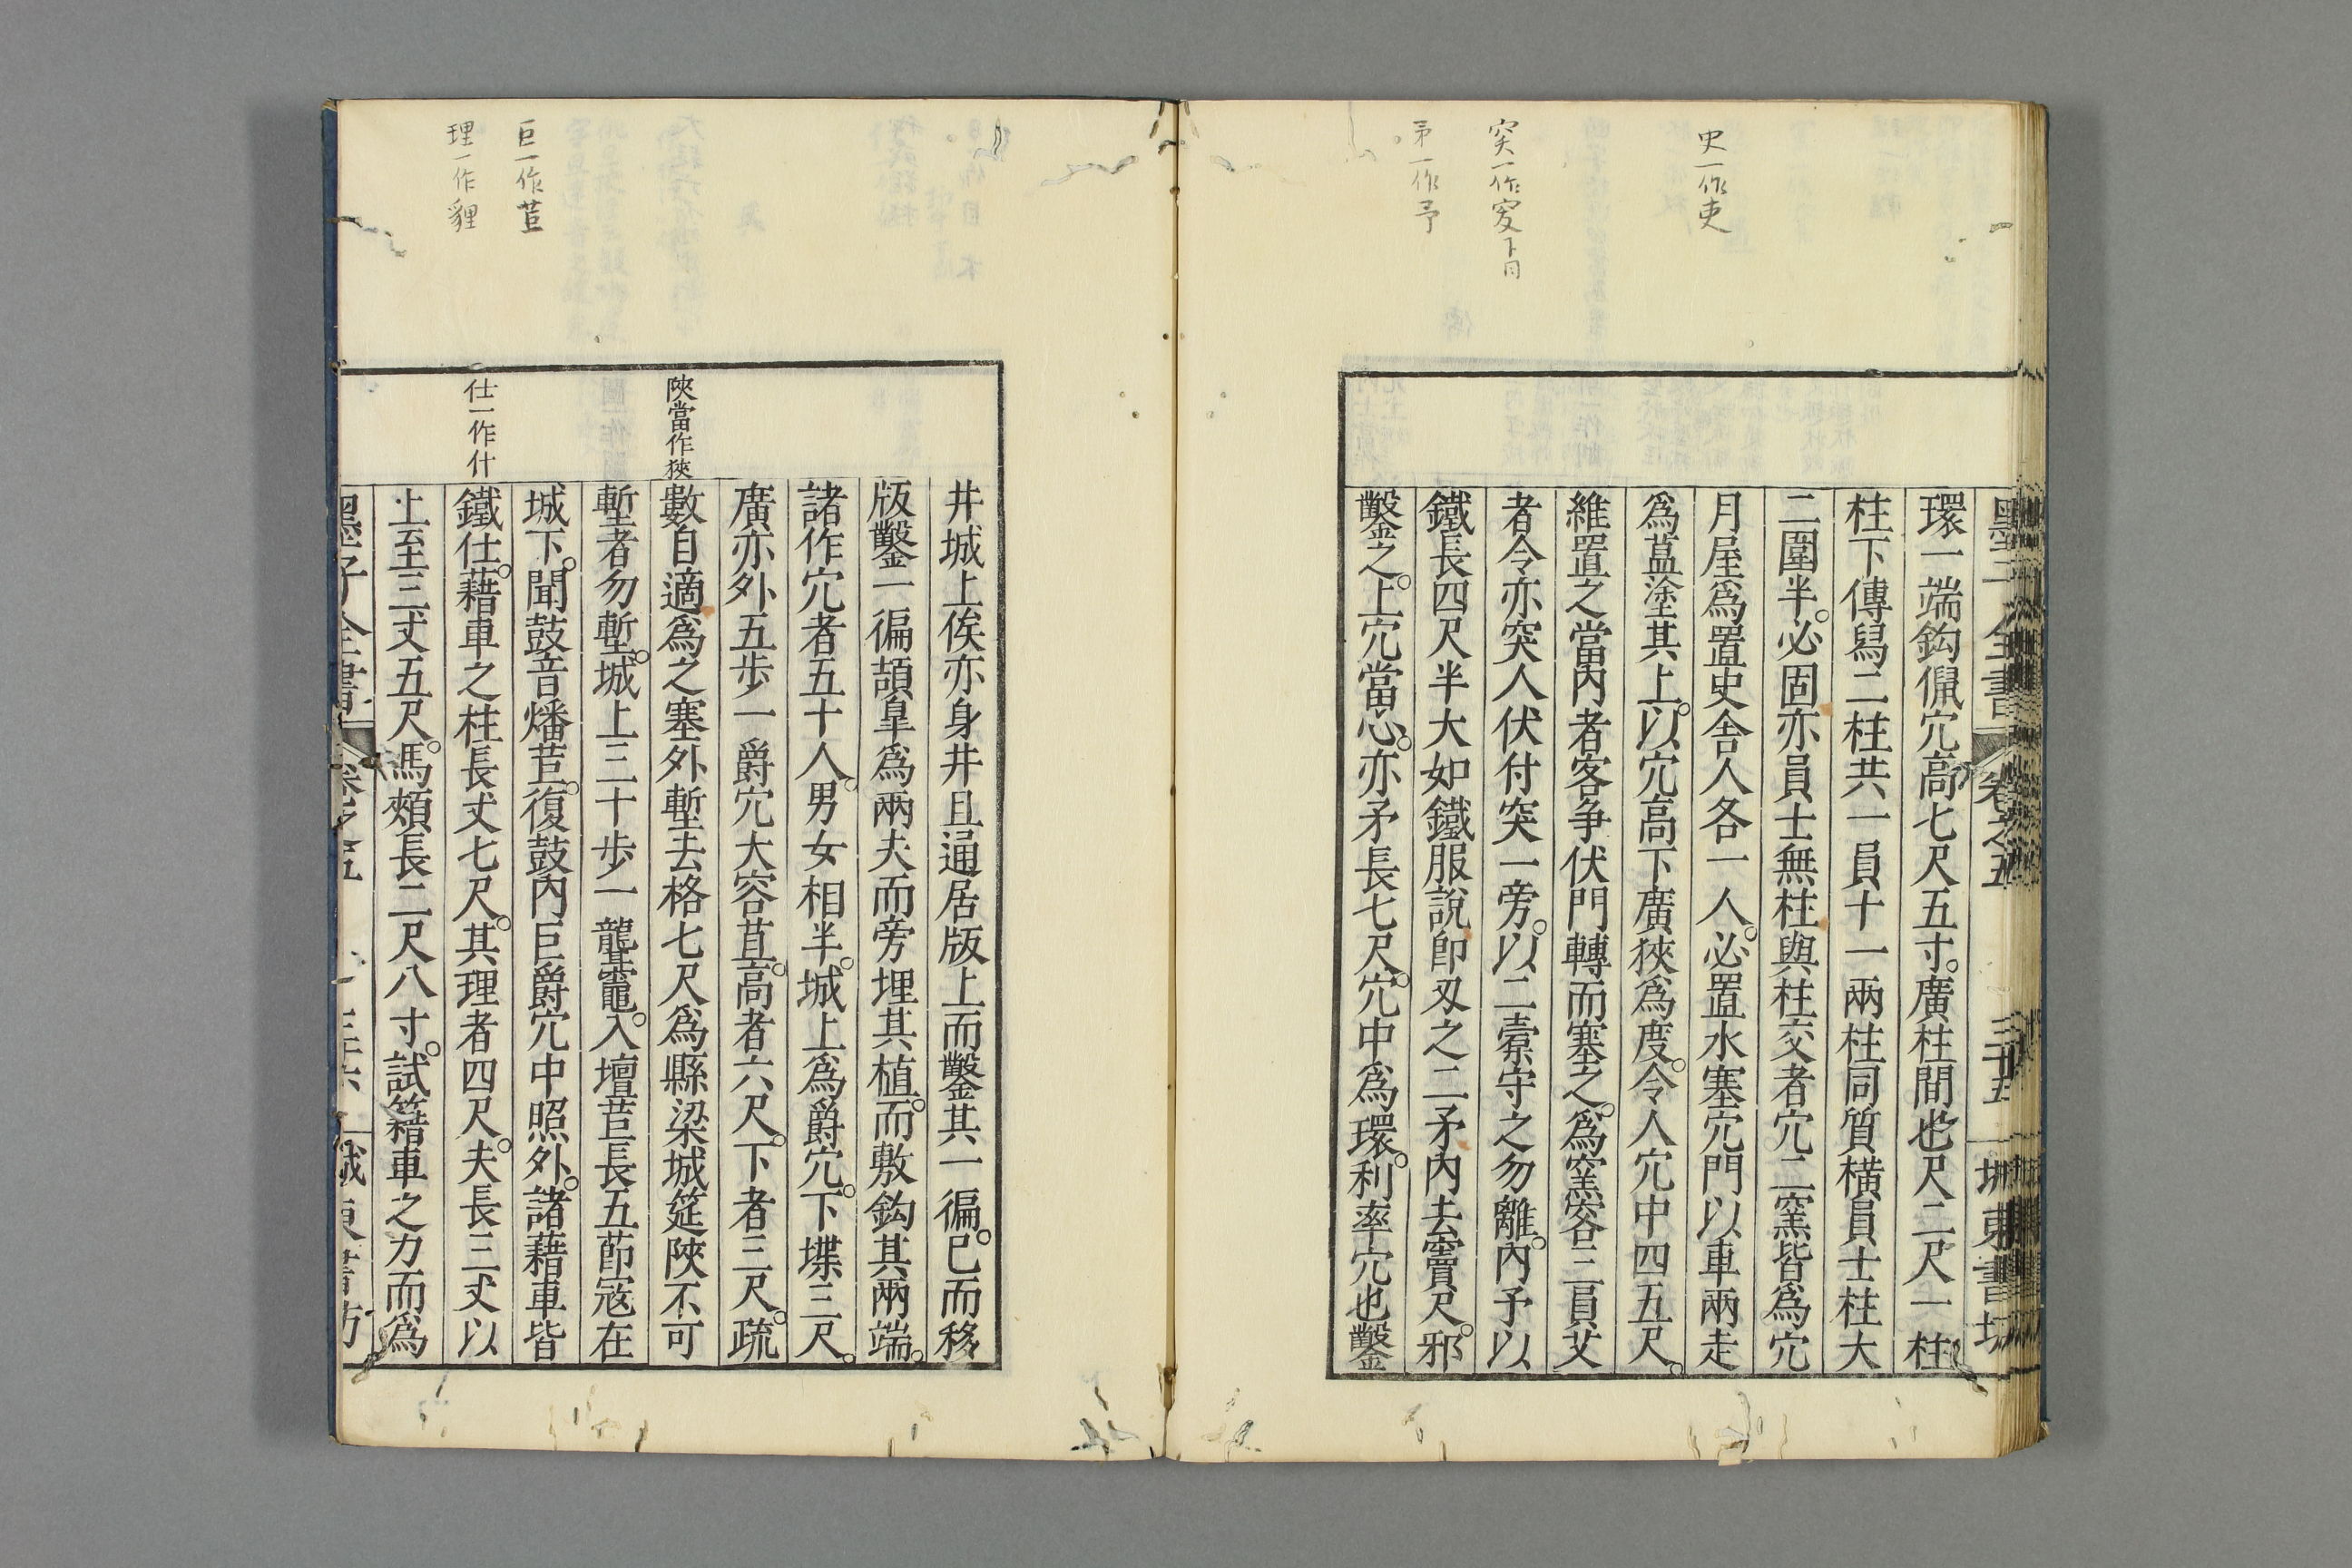 史一作吏
突一作㚇下同
苐一作予
墨子全書 卷之五 三十五 堀東書坊
環一端鈎倶穴高七尺五寸。廣柱間也尺二尺一柱
柱下傳舄二柱共一員十一兩柱同質横員士柱大
二圍半。必固亦員士無柱與柱交者穴二窯皆爲穴
月屋爲置史舍人各一人。必置水塞穴門以車兩走
爲蒀塗其上。以穴高下廣狹爲度。令人穴中四五尺。
維置之當内者客争伏門轉而塞之。爲窯容三員艾
者令亦突人伏付突一旁。以二橐守之勿離。内予以
鐵長四尺半大如鐵服說即刄之二矛内去竇尺。邪
鑿之。上穴當心。亦矛長七尺。穴中爲環。利率穴也鑿
巨一作苣
理一作貍
陜當作狹
仕一作什
井城上俟亦身井且通居版上而鑿其一徧。已而移
版鑿一徧頡皐爲兩夫而旁埋其植。而敷鈎其兩端。
諸作穴者五十人。男女相半。城上爲爵穴。下堞三尺。
廣亦外五歩一爵穴大容苴。高者六尺。下者三尺。疏
數自適爲之塞外塹去格七尺爲縣梁城筵陜不可
塹者勿塹。城上三十歩一聾竈。入壇苣長五莭寇在
城下。聞鼓音燔苣。復鼓内巨爵穴中照外。諸藉車皆
鐵仕。藉車之柱長丈七尺。其理者四尺。夫長三丈以
上至三丈五尺。馬頰長二尺八寸。試籍車之力而爲
墨子全書 卷之五